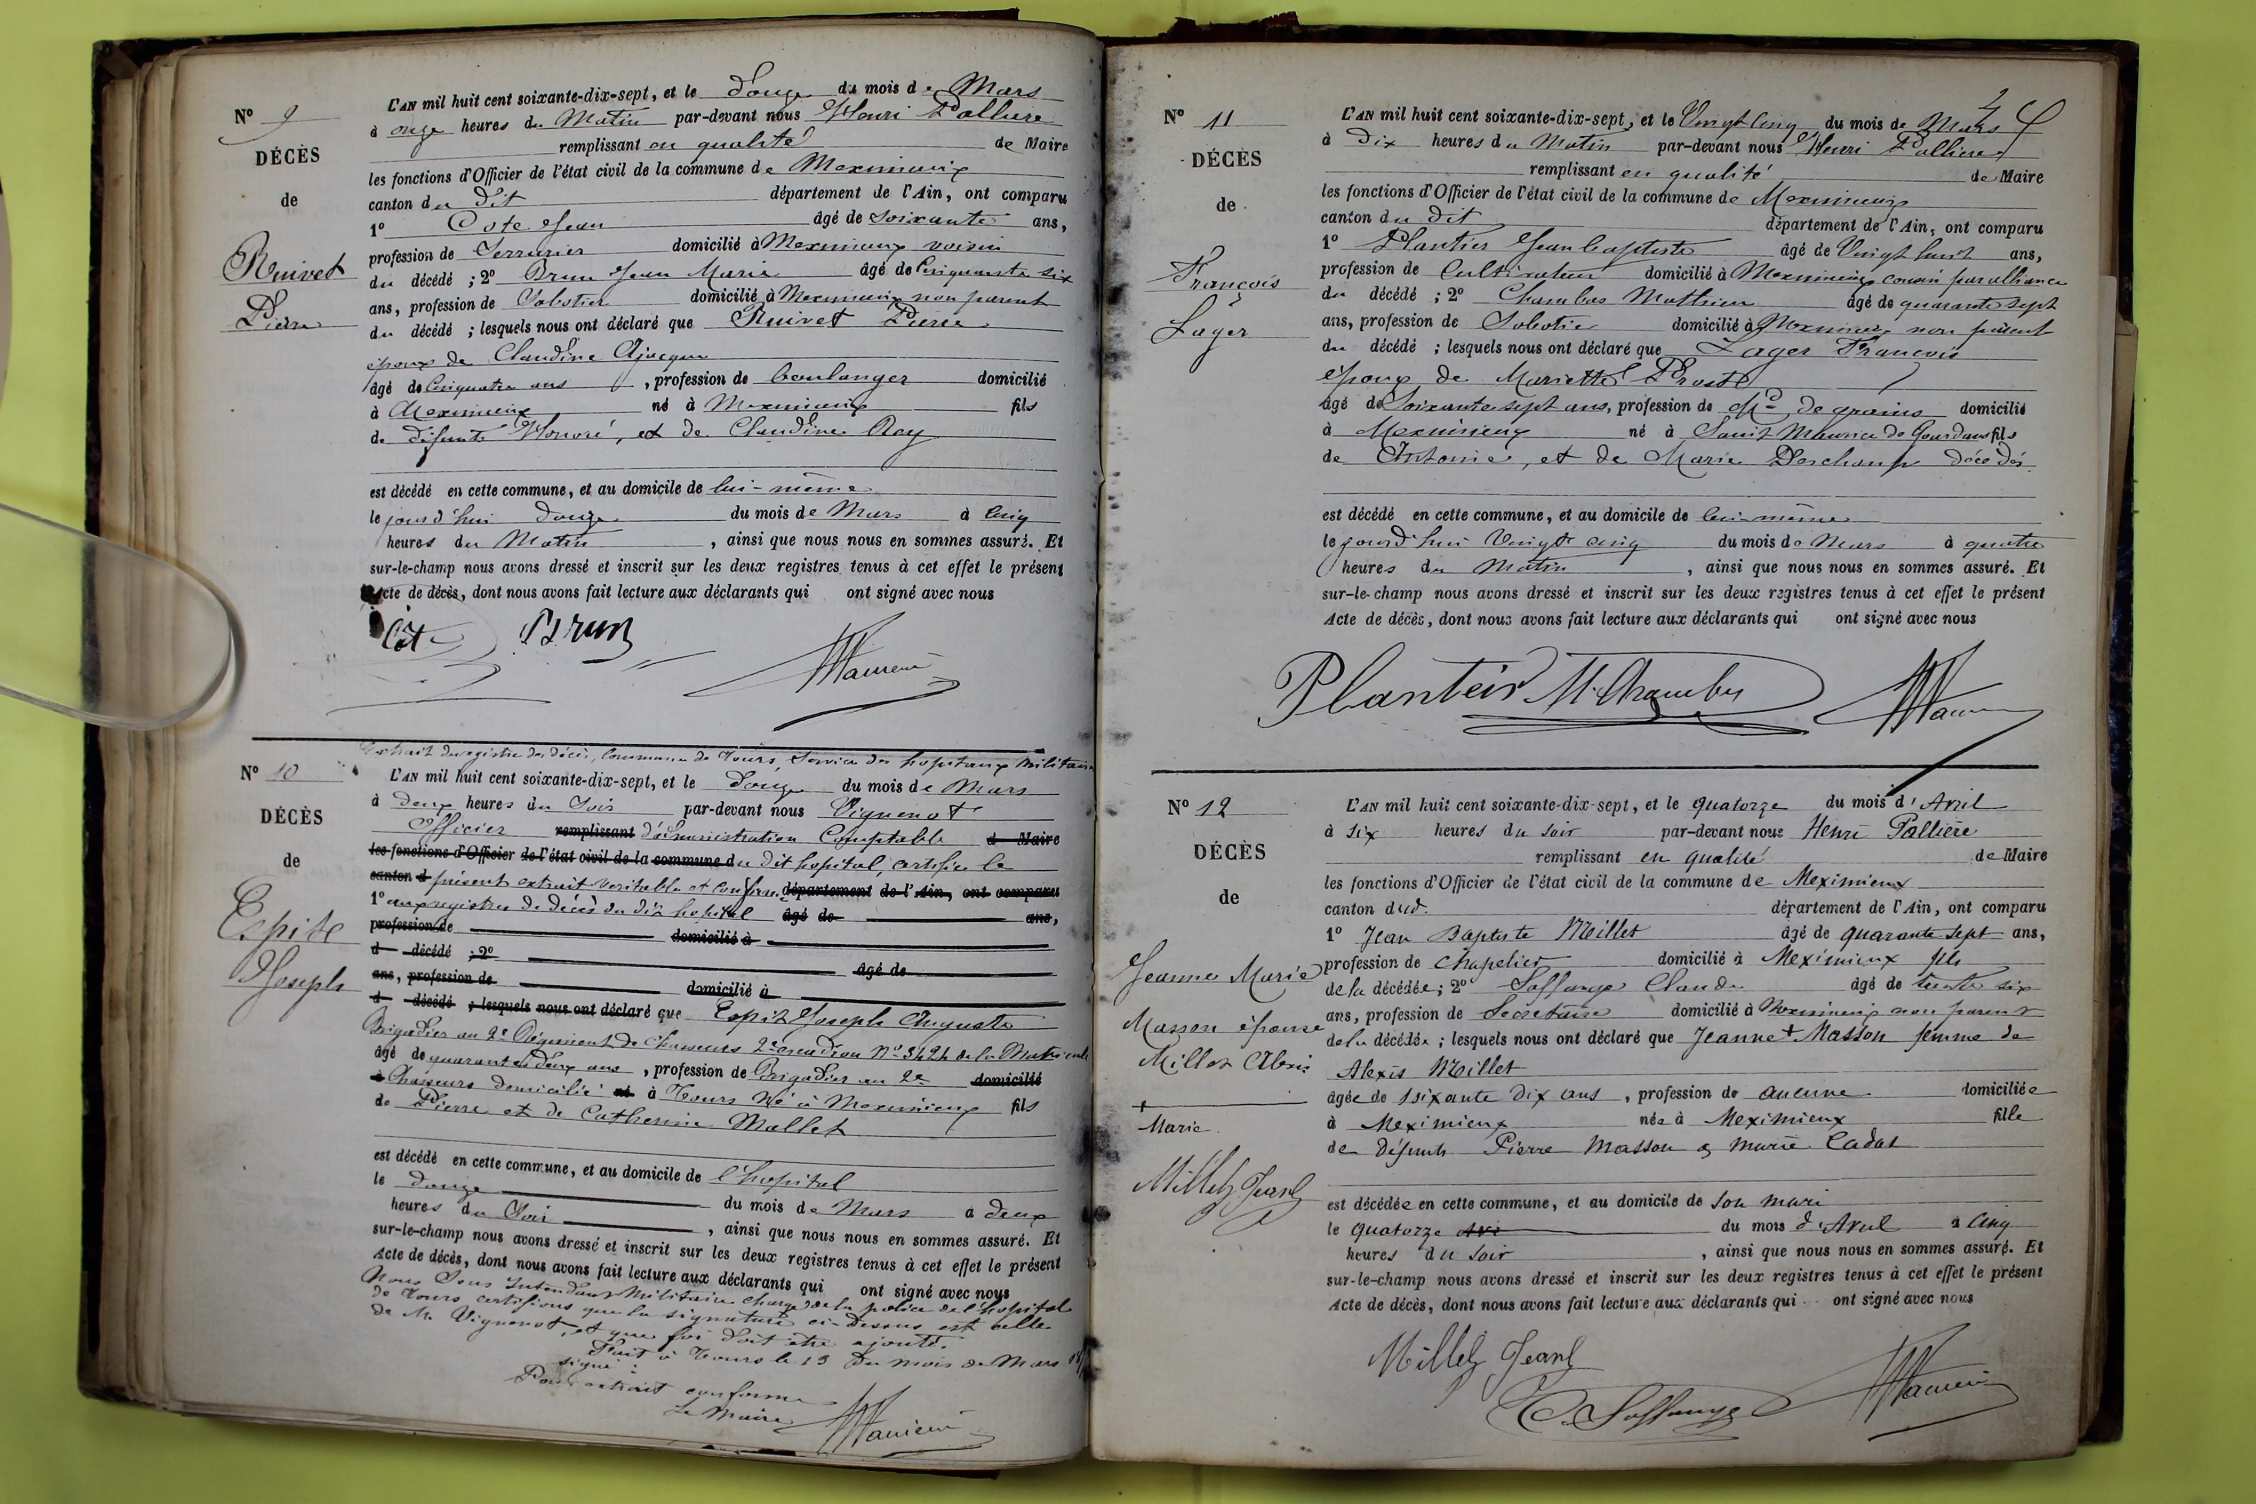 N° 9
DÉCÈS
de
Ruivet
Pierre
L'AN mil huit cent soixante-dix-sept, et le Douze du mois de Mars
à onze heures du Matin par-devant nous Henri Pallière
remplissant en qualité de Maire
les fonctions d'Officier de l'état civil de la commune de Meximieux
canton du dit département de l'Ain, ont comparu
1° Cote Jean âgé de soixante ans,
profession de Serrurier domicilié à Meximieux voisin
du décédé ; 2° Brun Jean Marie âgé de Cinquante six
ans, profession de Sabotier domicilié à Meximieux non parent
du décédé ; lesquels nous ont déclaré que Ruivet Pierre
époux de Claudine
âgé de Cinquante ans, profession de boulanger domicilié
à Meximieux né à Meximieux fils
de défunts Honoré, et de Claudine Roy
est décédé en cette commune, et au domicile de lui-même
le jourd'hui douze du mois de Mars à Cinq
heures du Matin, ainsi que nous nous en sommes assuré. Et
sur-le-champ nous avons dressé et inscrit sur les deux registres tenus à cet effet le présent
Acte de décès, dont nous avons fait lecture aux déclarants qui ont signé avec nous
Côte Brun
Extrait du registre des décès, Commune de Tours, Service des hopitaux Militaires
N° 10
DÉCÈS
de
Espit
Joseph
L'AN mil huit cent soixante-dix-sept, et le Douze du mois de Mars
à deux heures du Soir par-devant nous Vignenot
Officier remplissant d'administration Comptable d Maire
les fonctions d'Officier de l'état civil de la commune du dit hopital, certifie le
canton d présent extrait veritable et conforme département de l'Ain, ont comparu
1° aux registres de décès du dit hopital âgé de ans,
profession de domicilié à
d décédé ; 2° âgé de
ans, profession de domicilié à
d décédé ; lesquels nous ont déclaré que Espit Joseph Auguste
Brigadier au 2e Régiment de Chasseurs 2e escadron N° 3424 de la Matricule
âgé de quarante deux ans, profession de Brigadier au 2e domicilié
à Chasseurs domicilié né à Tours Né à Meximieux fils
de Pierre et de Catherine Mallet
est décédé en cette commune, et au domicile de l'hopital
le douze du mois de Mars à deux
heures du Soir, ainsi que nous nous en sommes assuré. Et
sur-le-champ nous avons dressé et inscrit sur les deux registres tenus à cet effet le présent
Acte de décès, dont nous avons fait lecture aux déclarants qui ont signé avec nous
Nous Sous Intendant Militaire chargé de la police de l'hopital
de Tours certifions que la signature ci-dessus est celle
de M. Vignenot, et que foi doit être ajoutée.
Fait à Tours le 13 du mois de Mars
signé :
Pour extrait conforme
Le Maire
N° 11
DÉCÈS
de
François
Lager
L'AN mil huit cent soixante-dix-sept, et le Vingt Cinq du mois de Mars
à Dix heures du Matin par-devant nous Henri Pallière
remplissant en qualité de Maire
les fonctions d'Officier de l'état civil de la commune de Meximieux
canton du dit département de l'Ain, ont comparu
1° Plantier Jean baptiste âgé de Vingt huit ans,
profession de Cultivateur domicilié à Meximieux cousin par alliance
du décédé ; 2° Chambas Mathieu âgé de quarante sept
ans, profession de Sabotier domicilié à Meximieux non parent
du décédé ; lesquels nous ont déclaré que Lager François
époux de Mariette Prost
âgé de Soixante sept ans, profession de Md de grains domicilié
à Meximieux né à Saint Maurice de Gourdans fils
de Antoine, et de Marie Deschamp décédés
est décédé en cette commune, et au domicile de lui-même
le jourd'hui Vingt cinq du mois de Mars à quatre
heures du Matin, ainsi que nous nous en sommes assuré. Et
sur-le-champ nous avons dressé et inscrit sur les deux registres tenus à cet effet le présent
Acte de décès, dont nous avons fait lecture aux déclarants qui ont signé avec nous
Plantier M. Chambas
N° 12
DÉCÈS
de
Jeanne Marie
Masson épouse
Millet Alexis
+
Marie
Millet Jean
L'AN mil huit cent soixante-dix-sept, et le quatorze du mois d'Avril
à six heures du soir par-devant nous Henri Pallière
remplissant en qualité de Maire
les fonctions d'Officier de l'état civil de la commune de Meximieux
canton dud. département de l'Ain, ont comparu
1° Jean Baptiste Millet âgé de quarante sept ans,
profession de chapelier domicilié à Meximieux fils
de la décédée ; 2° Soffange Claude âgé de trente six
ans, profession de Secrétaire domicilié à Meximieux non parent
de la décédée ; lesquels nous ont déclaré que Jeanne + Masson femme de
Alexis Millet
âgée de soixante dix ans, profession de aucune domiciliée
à Meximieux née à Meximieux fille
de défunts Pierre Masson & Marie Cadat
est décédée en cette commune, et au domicile de son mari
le quatorze avri du mois d'Avril à Cinq
heures du soir, ainsi que nous nous en sommes assuré. Et
sur-le-champ nous avons dressé et inscrit sur les deux registres tenus à cet effet le présent
Acte de décès, dont nous avons fait lecture aux déclarants qui ont signé avec nous
Millet Jean
C. Soffange